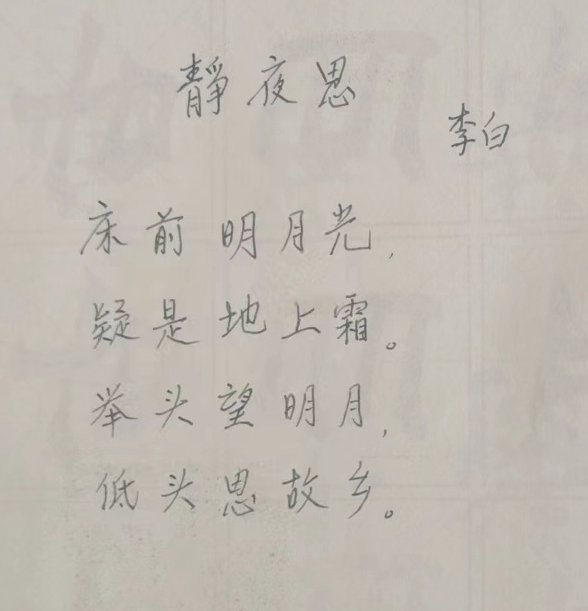 靜夜思
李白
床前明月光,
疑是地上霜。
举头望明月,
低头思故乡。